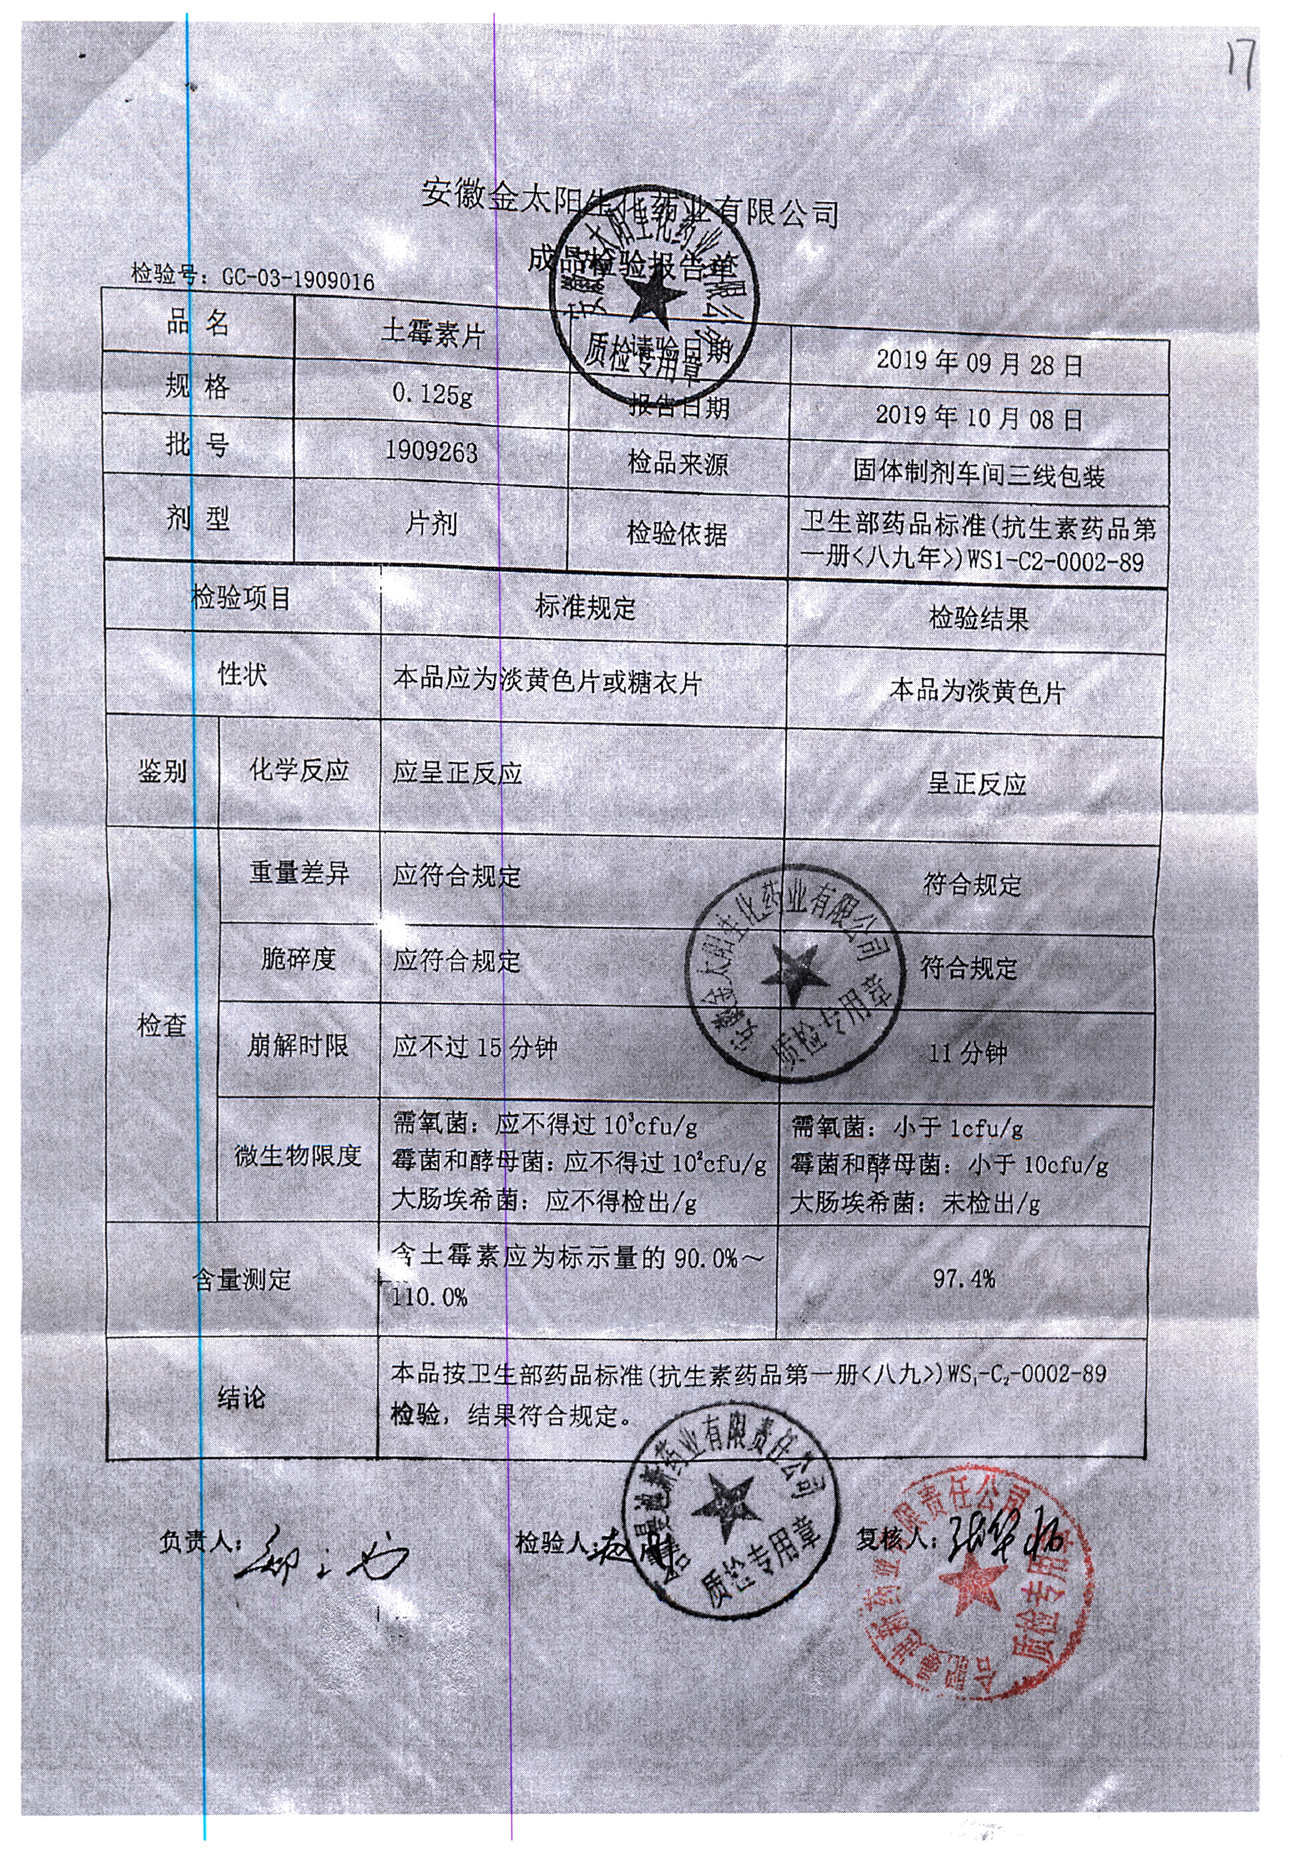 17
安徽金太阳生化药业有限公司
成品检验报告单
检验号：GC-03-1909016
品 名 土霉素片 请验日期 2019 年 09 月 28 日
规 格 0.125g 报告日期 2019 年 10 月 08 日
批 号 1909263 检品来源 固体制剂车间三线包装
剂 型 片剂 检验依据 卫生部药品标准(抗生素药品第
一册<八九年>)WS1-C2-0002-89
检验项目 标准规定 检验结果
性状 本品应为淡黄色片或糖衣片 本品为淡黄色片
鉴别 化学反应 应呈正反应 呈正反应
检查 重量差异 应符合规定 符合规定
脆碎度 应符合规定 符合规定
崩解时限 应不过 15 分钟 11 分钟
微生物限度
需氧菌：应不得过 10³cfu/g 需氧菌：小于 1cfu/g
霉菌和酵母菌：应不得过 10²cfu/g 霉菌和酵母菌：小于 10cfu/g
大肠埃希菌：应不得检出/g 大肠埃希菌：未检出/g
含量测定 含土霉素应为标示量的 90.0%～
110.0%
97.4%
结论 本品按卫生部药品标准(抗生素药品第一册<八九>)WS₁-C₂-0002-89
检验，结果符合规定。
负责人： 检验人： 复核人：
安徽金太阳生化药业有限公司
质检专用章
安徽金太阳生化药业有限公司
质检专用章
药业有限责任公司
质检专用章
药业有限责任公司
质检专用章